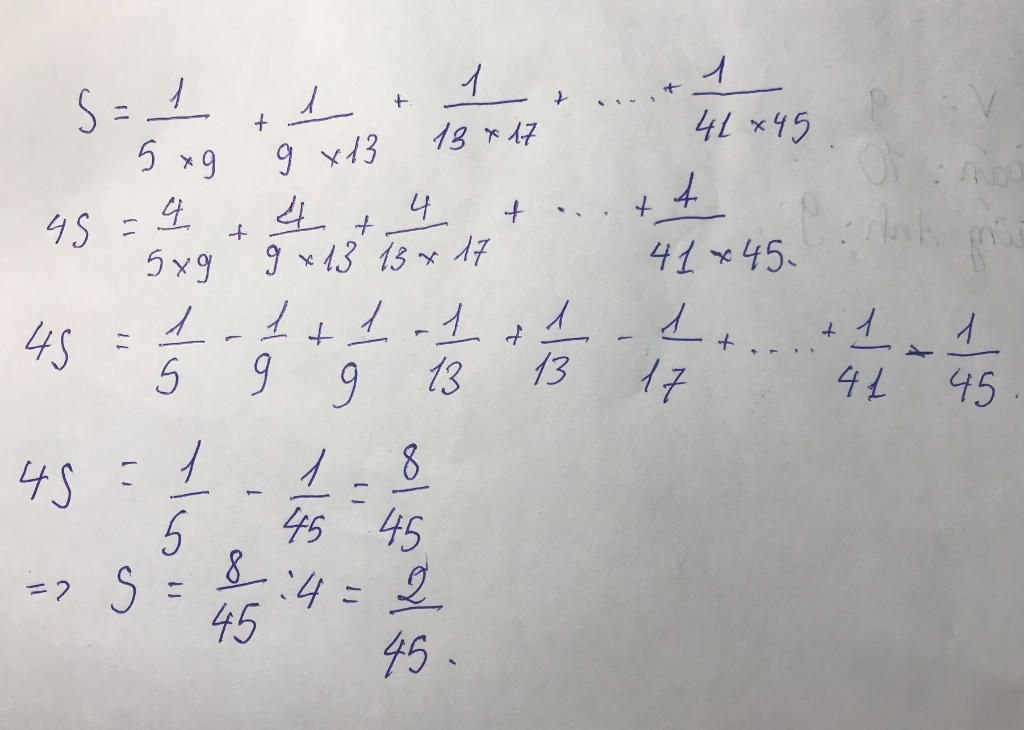 S = 1/(5 × 9) + 1/(9 × 13) + 1/(13 × 17) + ..... + 1/(41 × 45)
4S = 4/(5 × 9) + 4/(9 × 13) + 4/(13 × 17) + ... + 1/(41 × 45).
4S = 1/5 - 1/9 + 1/9 - 1/13 + 1/13 - 1/17 + ..... + 1/41 - 1/45.
4S = 1/5 - 1/45 = 8/45
=> S = 8/45 : 4 = 2/45.